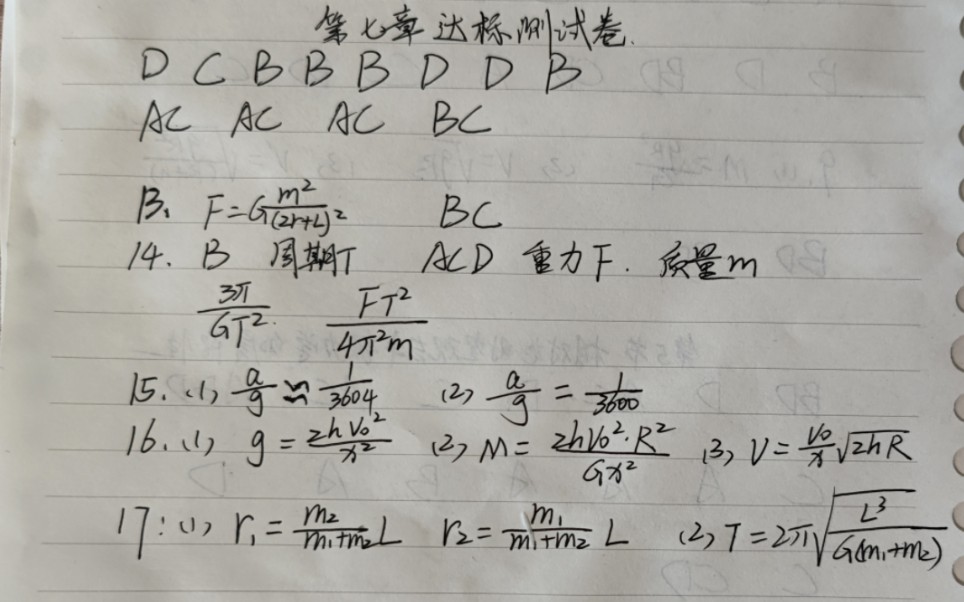 第七章达标测试卷.
D C B B B D D B
AC AC AC BC
13. F=G\frac{m^2}{(2r+L)^2} BC
14. B 周期T ACD 重力F. 质量m
\frac{3π}{GT^2}. \frac{FT^2}{4π^2m}
15. (1) \frac{a}{g} ≈ \frac{1}{3604} (2) \frac{a}{g} = \frac{1}{3600}
16. (1) g = \frac{2hV_0^2}{x^2} (2) M = \frac{2hV_0^2·R^2}{Gx^2} (3) V = \frac{V_0}{x}\sqrt{2hR}
17: (1) r_1 = \frac{m_2}{m_1+m_2}L r_2 = \frac{m_1}{m_1+m_2}L (2) T = 2π\sqrt{\frac{L^3}{G(m_1+m_2)}}